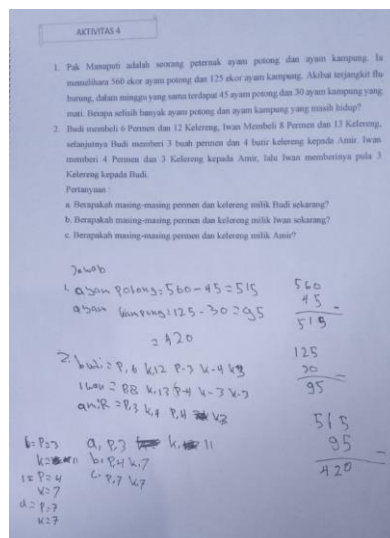 AKTIVITAS 4
1. Pak Manaputi adalah seorang peternak ayam potong dan ayam kampung. Ia
memelihara 560 ekor ayam potong dan 125 ekor ayam kampung. Akibat terjangkit flu
burung, dalam minggu yang sama terdapat 45 ayam potong dan 30 ayam kampung yang
mati. Berapa selisih banyak ayam potong dan ayam kampung yang masih hidup?
2. Budi membeli 6 Permen dan 12 Kelereng, Iwan Membeli 8 Permen dan 13 Kelereng,
selanjutnya Budi memberi 3 buah permen dan 4 butir kelereng kepada Amir. Iwan
memberi 4 Permen dan 3 Kelereng kepada Amir, lalu Iwan memberinya pula 3
Kelereng kepada Budi.
Pertanyaan :
a. Berapakah masing-masing permen dan kelereng milik Budi sekarang?
b. Berapakah masing-masing permen dan kelereng milik Iwan sekarang?
c. Berapakah masing-masing permen dan kelereng milik Amir?
Jawab
1. ayam potong: 560 - 45 = 515
ayam kampung: 125 - 30 = 95
= 420
560
45 -
515
125
30 -
95
515
95 -
420
2. budi = P, 6 k, 12 P-3 k-4
k, 13 P-4 k-3 k-3
= P,3 k,4 P,4 k3
a, P,3 k, 11
b, P,4 k,7
c, P,7 k,7
b = P=3
k= 11
i = P=4
k=7
a = P=7
k=7